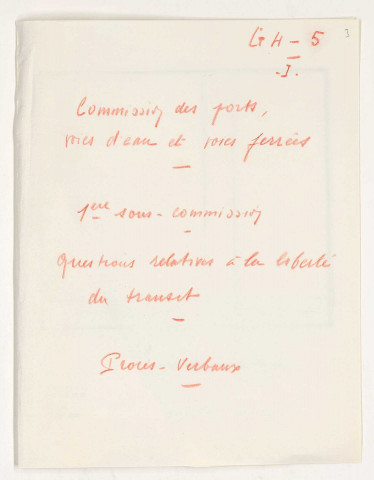 GH - 5
3
I.
Commission des ports,
voies d'eau et voies ferrées
1ère sous-commission
Questions relatives à la liberté
du transit
Procès-Verbaux